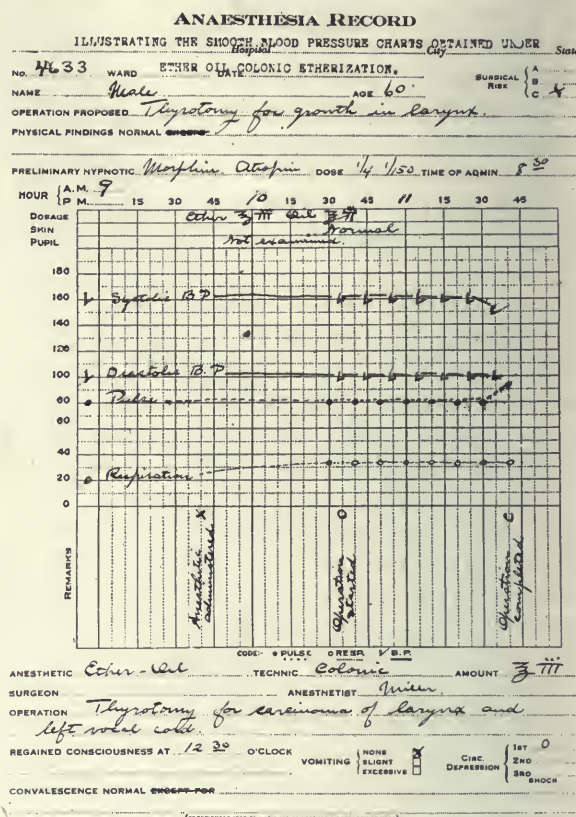 ANAESTHESIA RECORD
ILLUSTRATING THE SMOOTH BLOOD PRESSURE CHARTS OBTAINED UNDER
Hospital City State
ETHER OIL COLONIC ETHERIZATION.
No. 4633 WARD DATE SURGICAL RISK A B C
NAME Male AGE 60
OPERATION PROPOSED Thyrotomy for growth in larynx.
PHYSICAL FINDINGS NORMAL EXCEPT
PRELIMINARY HYPNOTIC Morphin - Atropin DOSE 1/4 1/150 TIME OF ADMIN. 8 30
HOUR A.M. 9
P.M. 15 30 45 10 15 30 45 11 15 30 45
DOSAGE Ether ℥ III Oil ℥ II
SKIN Normal
PUPIL Not examined.
180
160 Systolic B.P
140
120
100 Diastolic B.P
80 Pulse
60
40
20 Respiration
0
REMARKS
X Anesthetic administered
O Operation started
C Operation completed
CODE:- PULSE O RESP. V B.P.
ANESTHETIC Ether-Oil TECHNIC Colonic AMOUNT ℥ III
SURGEON ANESTHETIST Miller
OPERATION Thyrotomy for carcinoma of larynx and
left vocal cord.
REGAINED CONSCIOUSNESS AT 12 30 O'CLOCK VOMITING NONE X SLIGHT EXCESSIVE CIRC. DEPRESSION 1ST O 2ND 3RD SHOCK
CONVALESCENCE NORMAL EXCEPT FOR